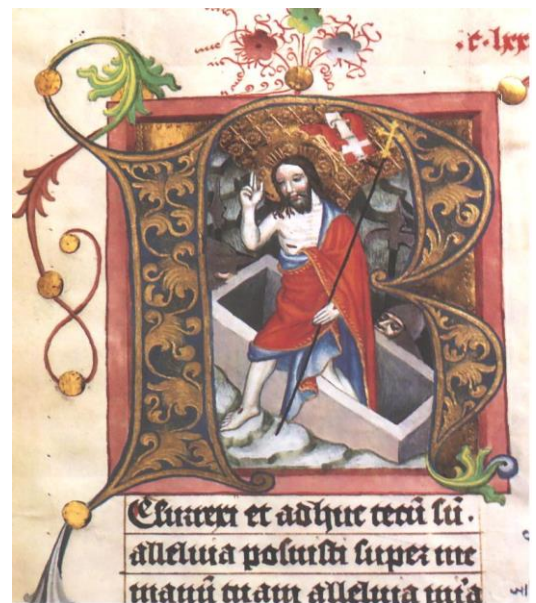 .c.lxx
R
Esurrexi et adhuc tecū sū.
alleluia posuisti super me
manū tuam alleluia